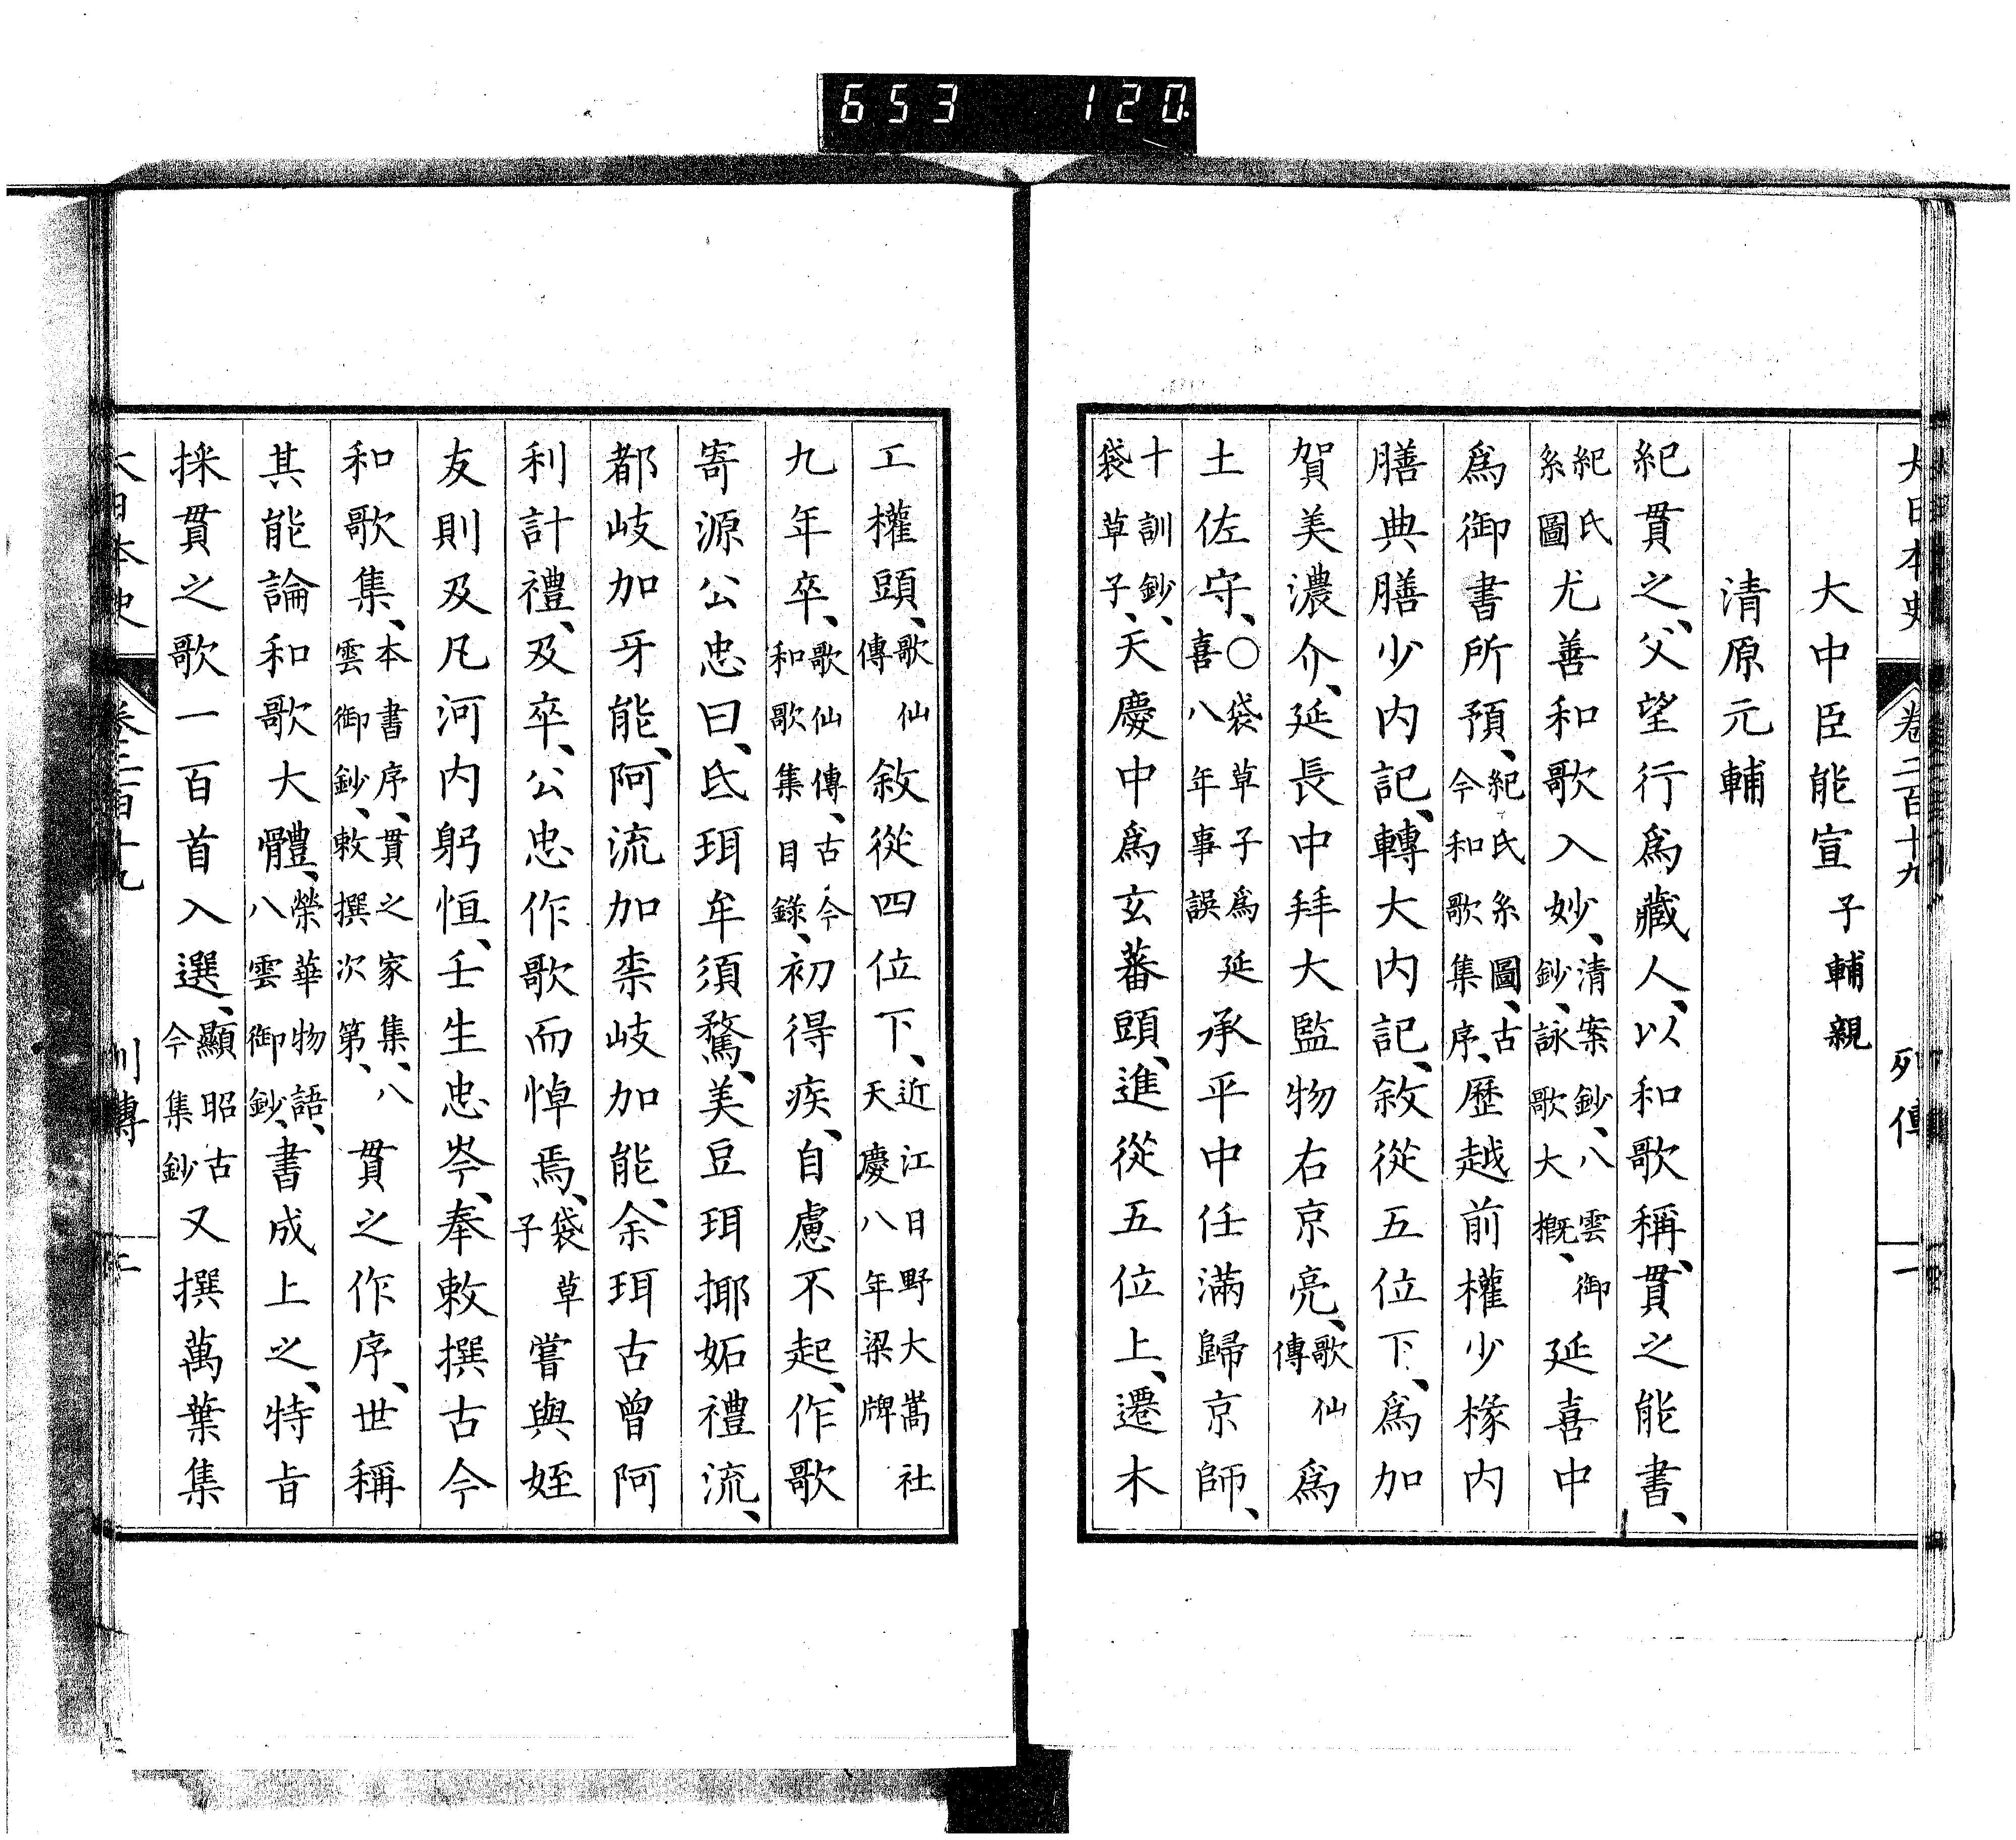 653 120
大日本史 卷二百十九 列傳 一
大中臣能宣 子輔親
清原元輔
紀貫之、父望行爲藏人、以和歌稱、貫之能書、
紀氏系圖尤善和歌入妙、清案鈔、八雲御鈔、詠歌大概、延喜中
爲御書所預、紀氏系圖、古今和歌集序、歷越前權少椽內
膳典膳少内記、轉大内記、敘從五位下、爲加
賀美濃介、延長中拜大監物右京亮、歌仙傳爲
土佐守、○袋草子爲延喜八年事誤承平中任滿歸京師、
十訓鈔、袋草子、天慶中爲玄蕃頭、進從五位上、遷木
工權頭、歌仙傳敘從四位下、近江日野大嵩社天慶八年梁牌
九年卒、歌仙傳、古今和歌集目錄、初得疾、自慮不起、作歌
寄源公忠曰、氐珥牟須鶩、美豆珥揶妬禮流、
都岐加牙能、阿流加柰岐加能、余珥古曾阿
利計禮、及卒、公忠作歌而悼焉、袋草子嘗與姪
友則及凡河内躬恒、壬生忠岑、奉敕撰古今
和歌集、本書序、貫之家集、八雲御鈔、敕撰次第、貫之作序、世稱
其能論和歌大體、榮華物語、八雲御鈔、書成上之、特旨
採貫之歌一百首入選、顯昭古今集鈔又撰萬葉集
大日本史 卷二百十九 列傳 二